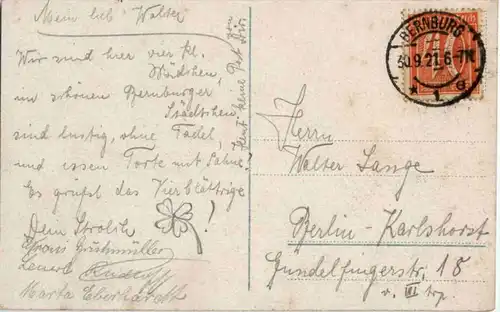 Mein lieb Walter
Wir sind hier vier kl.
Mädchen,
im schönen Bernburger
Städtchen,
sind lustig, ohne Tadel,
und essen Torte mit Sahne.
Es grüßt das Vierblättrige
!
Dein Strolch
Grützmüller
Rudolf
Marta Eberhardt
Heut keine Post von Dir
BERNBURG
30.9.21. 6-7N.
* 1 c
Herrn
Walter Lange
Berlin-Karlshorst
Gundelfingerstr. 18
v. III trp